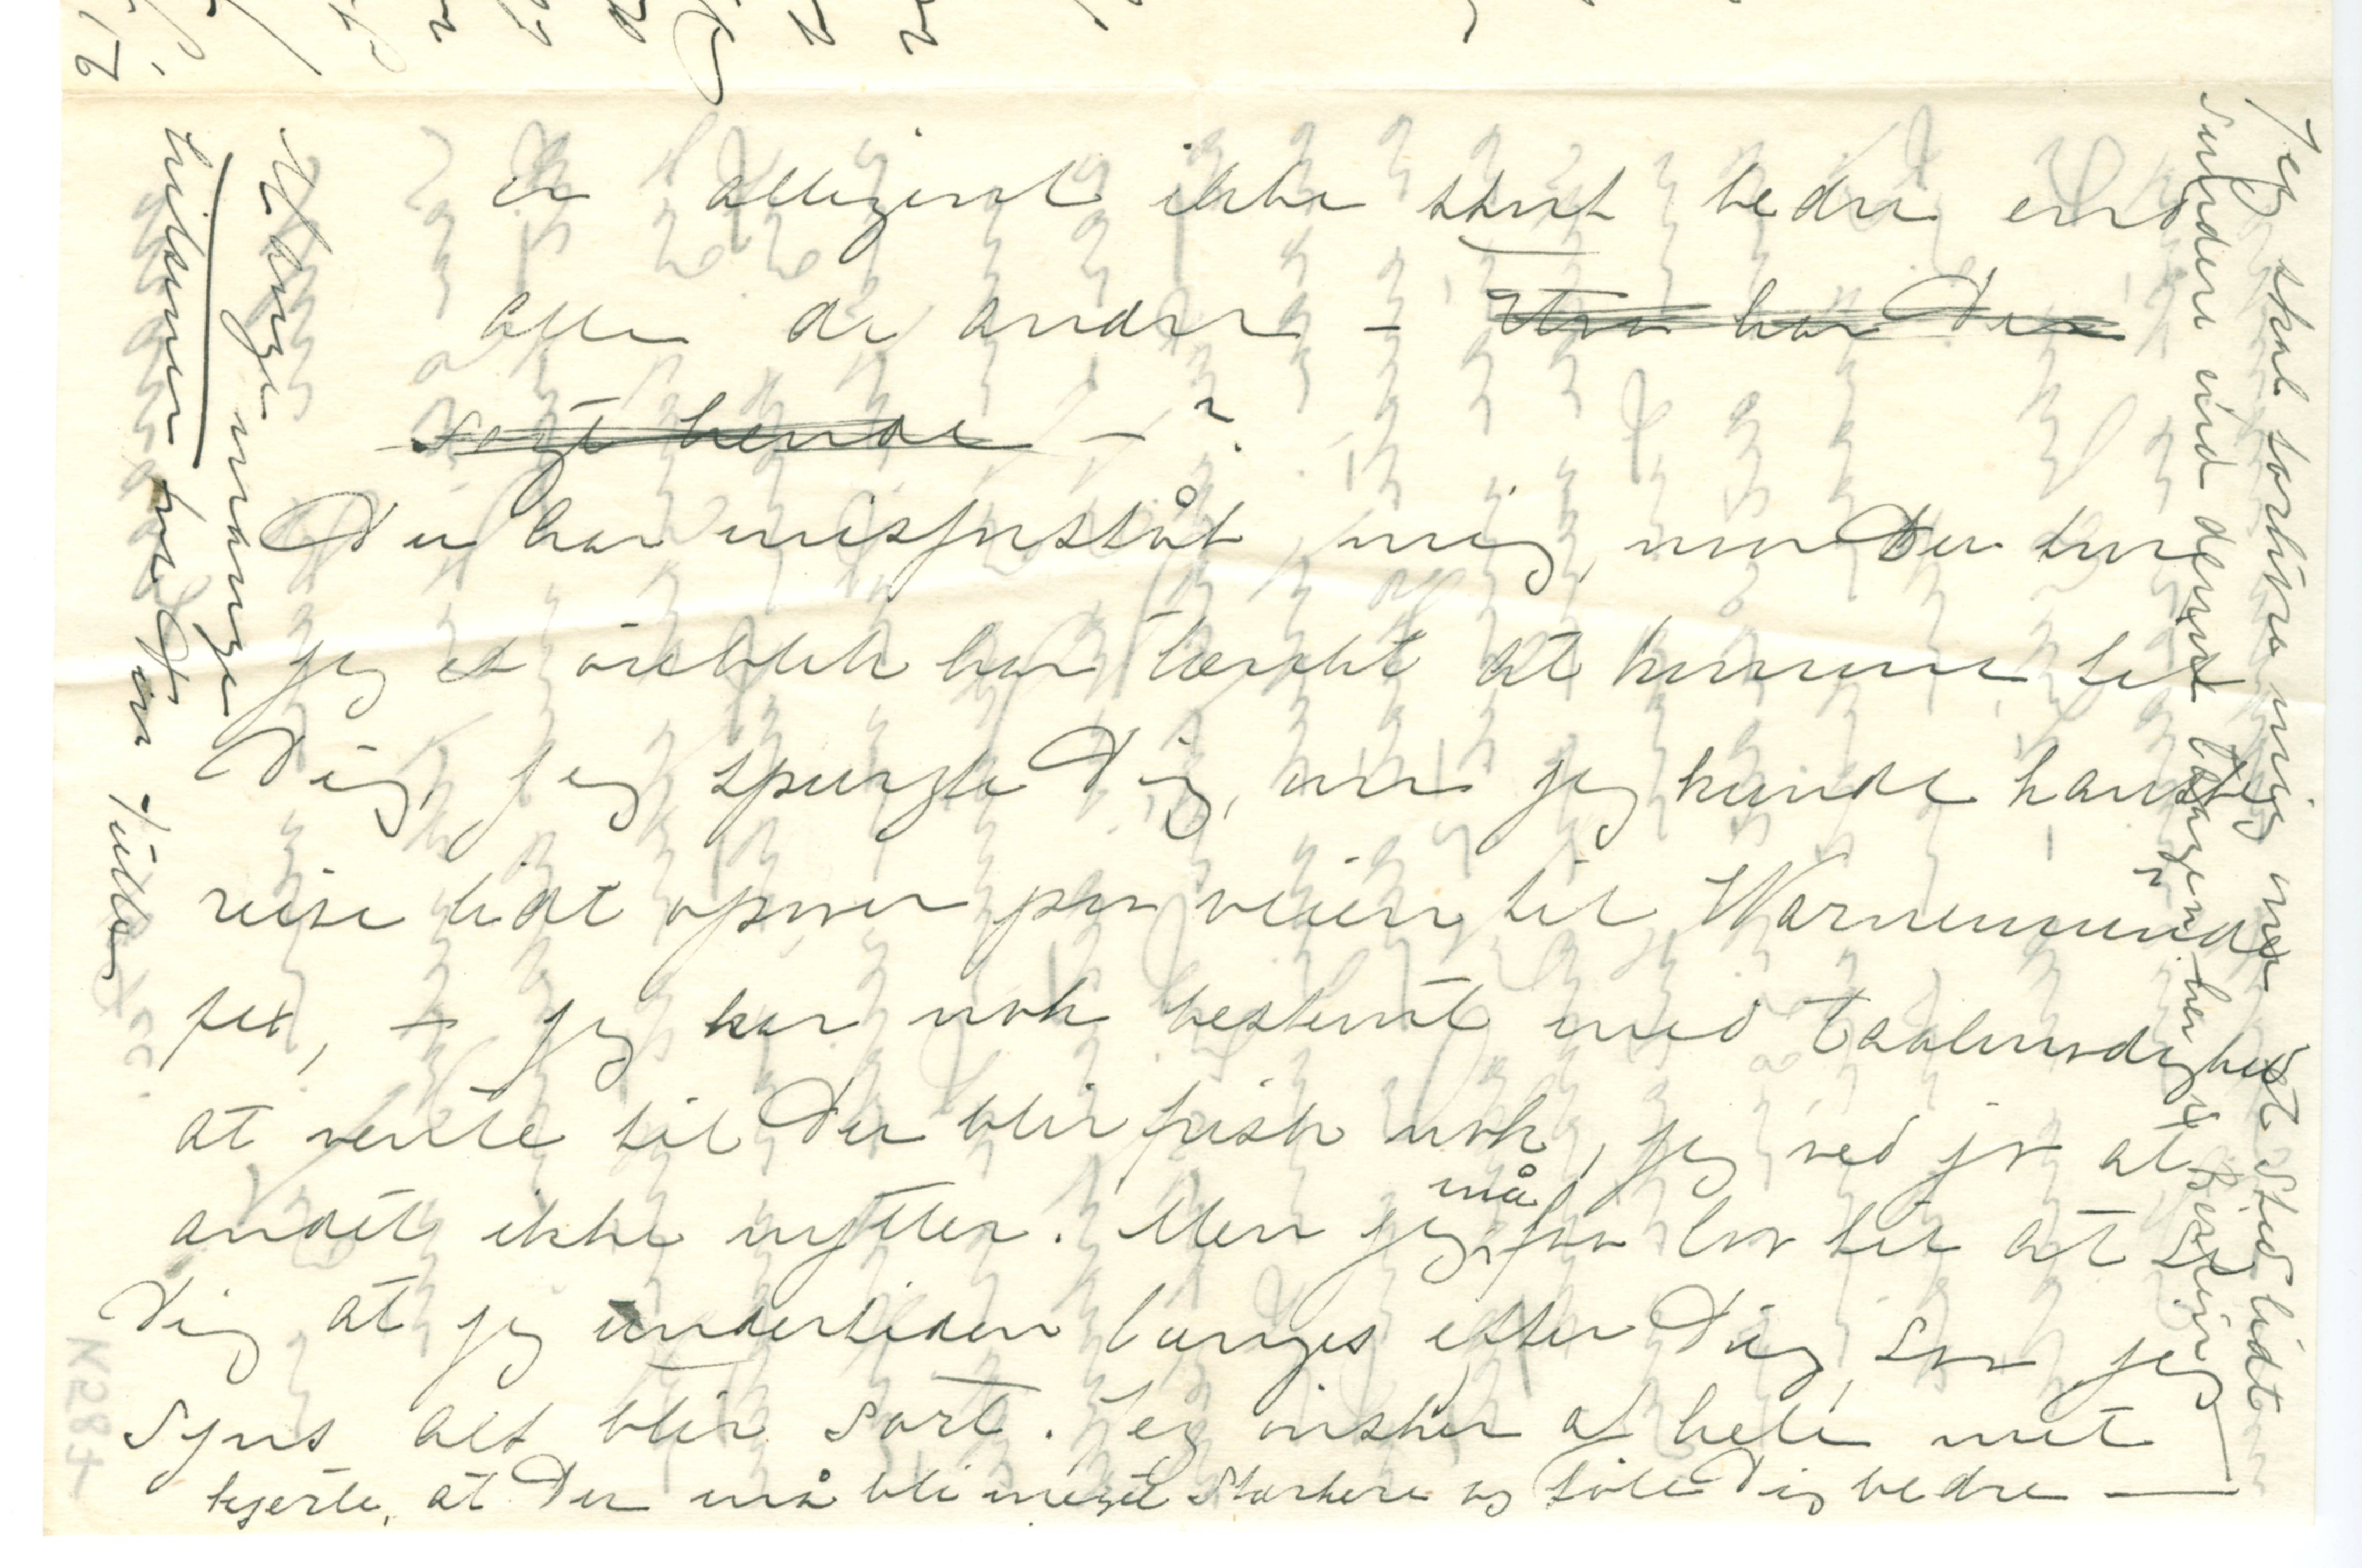 er alligevel ikke stort bedre end
alle de andre – Hva har Du
sagt hende – ?
Du har misforstået mig, om Du tror
jeg et öieblik har tænkt at komme til
Dig, jeg spurgte Dig, om jeg kunde kanske
reise lidt opover paa veien til Warnemünde
fex, – jeg har nok bestemt med Taalmodighed
at vente til Du blir frisk nok, jeg ved jo at
andet ikke nytter. Men jeg må faa lov til at si
Dig at jeg undertiden længes efter Dig, saa jeg
syns alt blir sort. Jeg önsker af hele mit
hjerte, at Du må bli meget stærkere og föle Dig bedre —
Jeg skal forlöve mig med et Sted lidt
sundere end denne
Mange mange
hilsener fra Din Tulla
K 5874